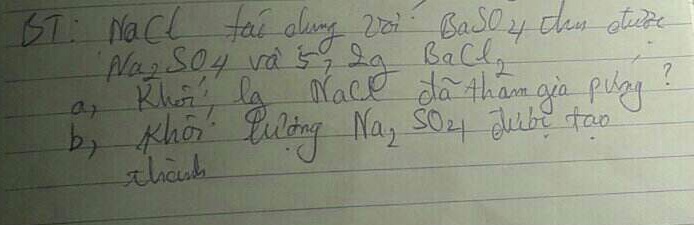 BT: NaCl tác dụng với BaSO4 thu được
Na2SO4 và 5,2g BaCl2
a, Khối lg NaCl đã tham gia pứng?
b, Khối lượng Na2SO4 được tạo
thành